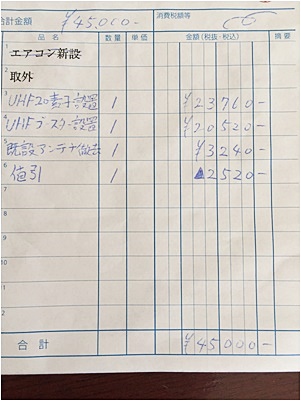 合計金額 ¥45,000- 消費税額等
品名 数量 単価 金額(税抜・税込) 摘要
1 エアコン新設
2 取外
3 UHF20素子設置 1 ¥23760-
4 UHFブースター設置 1 ¥20520-
5 既設アンテナ撤去 1 ¥3240-
6 値引 1 ▲2520-
7
8
9
10
合計 ¥45000-